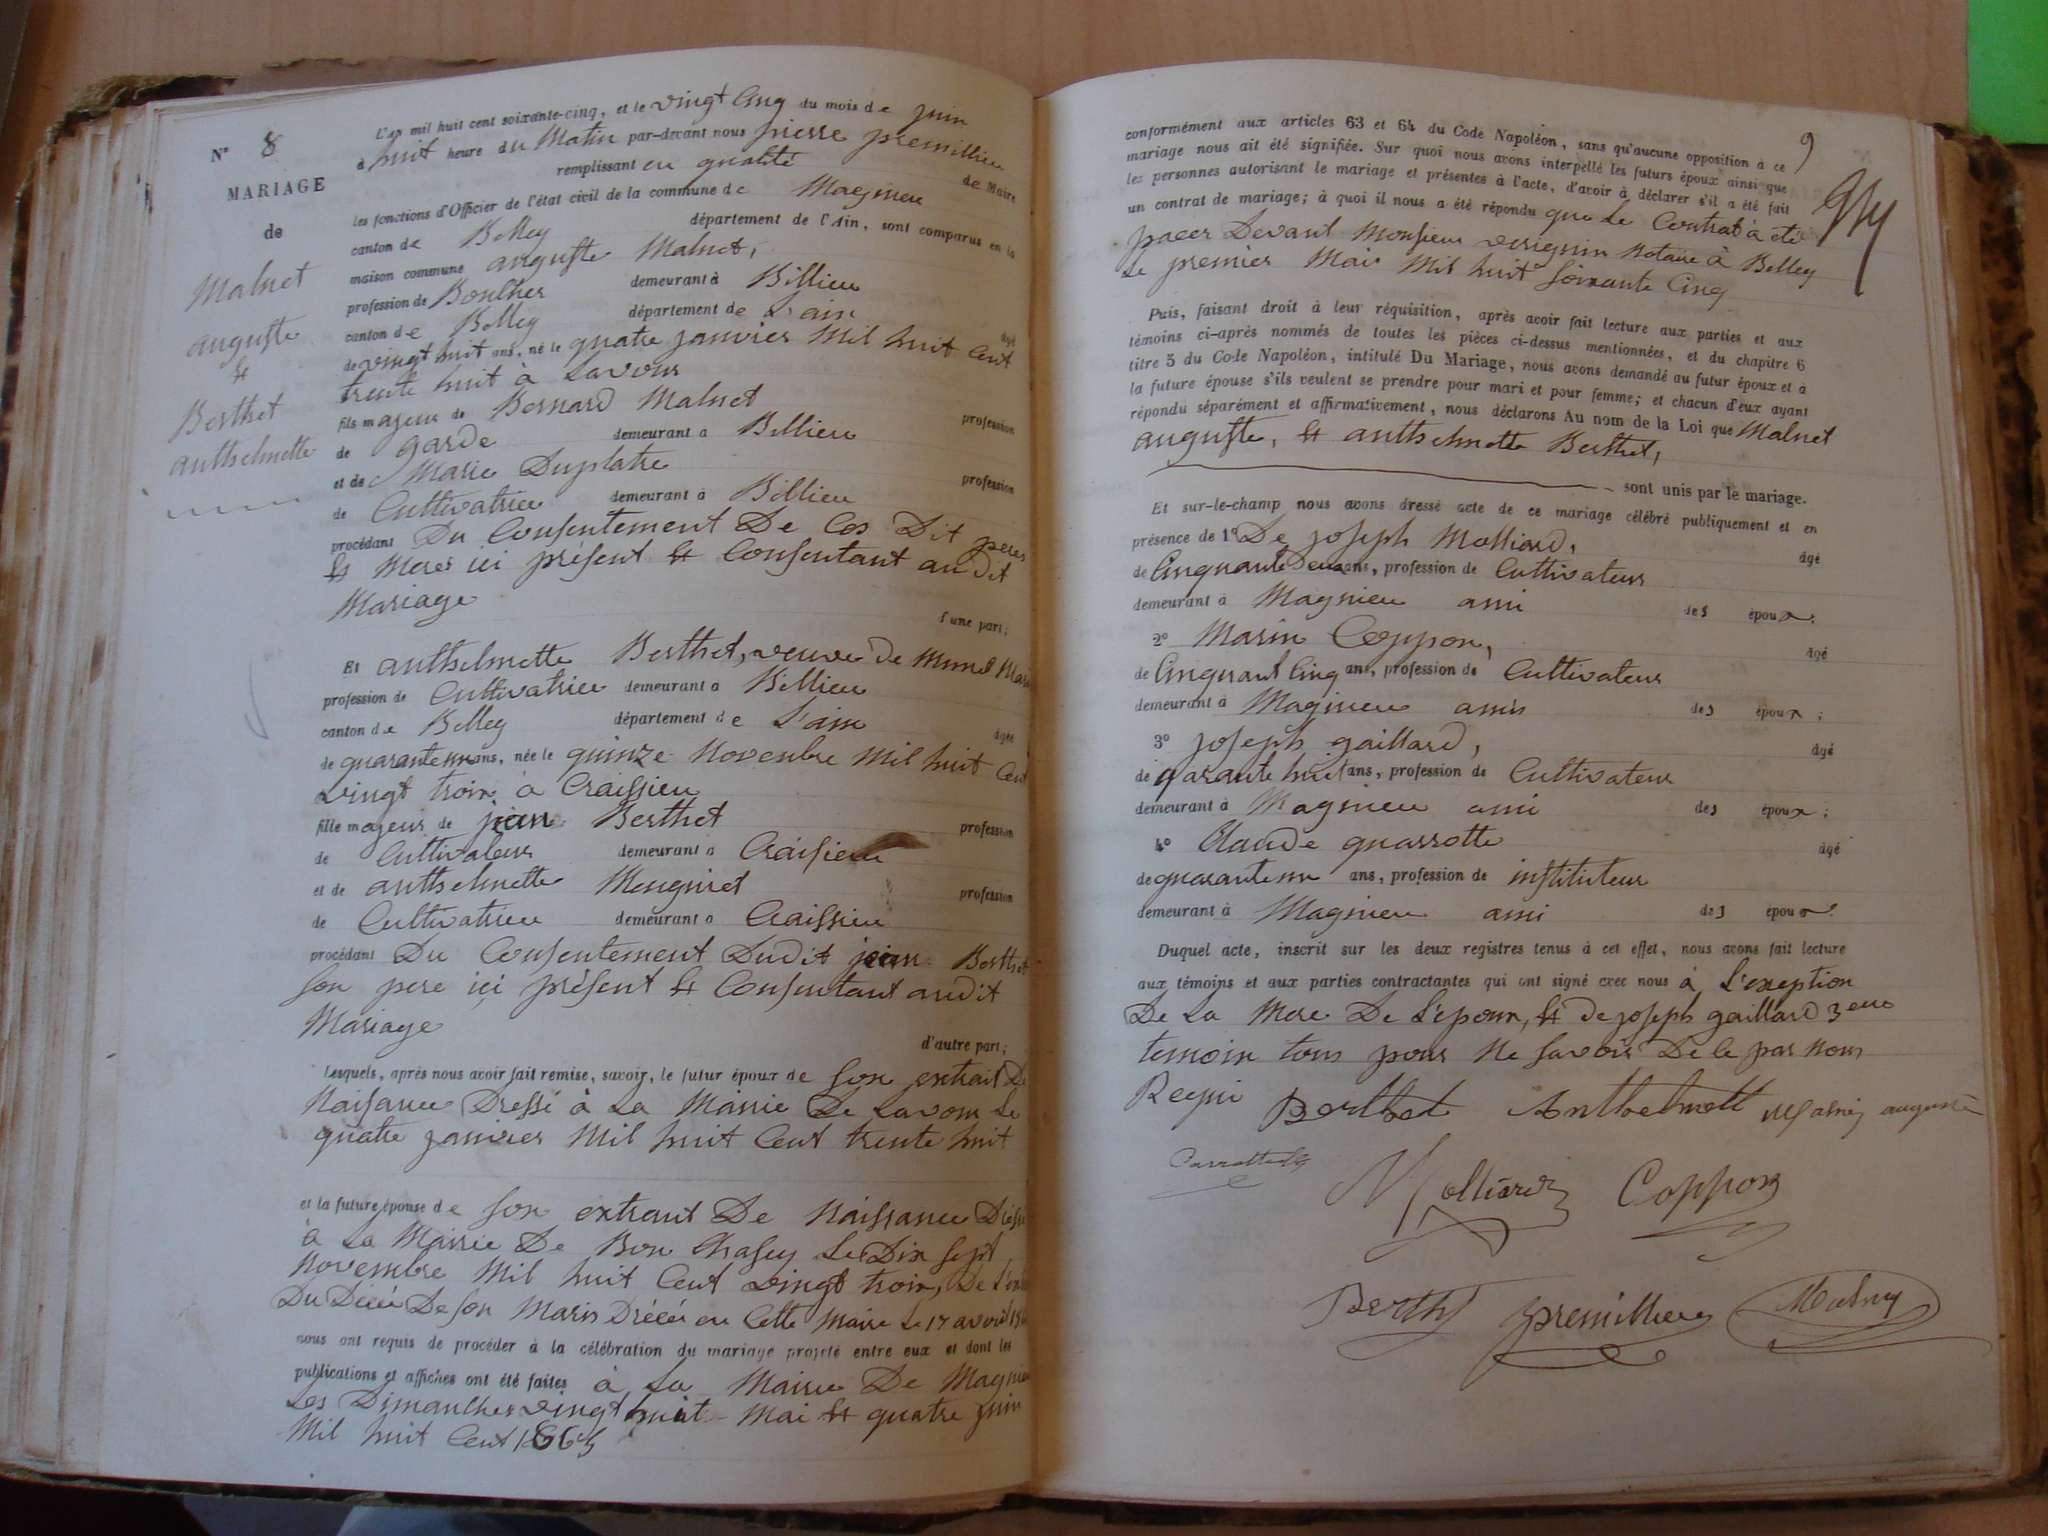 N° 8
MARIAGE
de
Malnet
auguste
&
Berthet
anthelmette
L'an mil huit cent soixante-cinq, et le vingt Cinq du mois de juin
à huit heure du Matin par-devant nous pierre premillieu
remplissant en qualité de Maire
les fonctions d'Officier de l'état civil de la commune de Magnieu
canton de Belley département de l'Ain, sont comparus en la
maison commune auguste Malnet,
profession de demeurant à Billieu
canton de Belley département de L'ain âgé
de vingt huit ans, né le quatre janvier Mil huit Cent
trente huit à Lavour
fils majeur de Bernard Malnet profession
de garde demeurant à Billieu
et de Marie Duplatre profession
de Cultivatrice demeurant à Billieu
procédant Du Consentement De Ces Dit peres
& Meres ici présent & Consentant audit
Mariage
d'une part;
Et anthelmette Berthet, veuve de
profession de Cultivatrice demeurant à Billieu
canton de Belley département de L'ain âgée
de quarante un ans, née le quinze Novembre Mil huit Cent
vingt trois à Craissieu
fille majeur de jean Berthet profession
de Cultivateur demeurant à Craisieu
et de anthelmette Meugniet profession
de Cultivatrice demeurant à Craissieu
procédant Du Consentement Dudit jean Berthet
son pere ici présent & Consentant audit
Mariage
d'autre part;
Lesquels, après nous avoir fait remise, savoir, le futur époux de son extrait De
Naissance Dressé à La Mairie De Lavour Le
quatre janvier Mil huit Cent trente huit
et la future épouse de son extrait De Naissance Dressé
à La Mairie De Bon Chasey Le Dix sept
Novembre Mil huit Cent vingt trois, De
Du Décé De son Maris Décéé en Cette Mairie Le 17 avril
nous ont requis de procéder à la célébration du mariage projeté entre eux et dont les
publications et affiches ont été faites à La Mairie De Magnieu
Les Dimanches vingt huit Mai & quatre juin
Mil huit Cent 1865
9
conformément aux articles 63 et 64 du Code Napoléon, sans qu'aucune opposition à ce
mariage nous ait été signifiée. Sur quoi nous avons interpellé les futurs époux ainsi que
les personnes autorisant le mariage et présentes à l'acte, d'avoir à déclarer s'il a été fait
un contrat de mariage; à quoi il nous a été répondu que Le Contrat à été
passer Devant Monsieur Notaire à Belley
Le premier Mai Mil huit soixante Cinq
Puis, faisant droit à leur réquisition, après avoir fait lecture aux parties et aux
témoins ci-après nommés de toutes les pièces ci-dessus mentionnées, et du chapitre 6
titre 5 du Code Napoléon, intitulé Du Mariage, nous avons demandé au futur époux et à
la future épouse s'ils veulent se prendre pour mari et pour femme; et chacun d'eux ayant
répondu séparément et affirmativement, nous déclarons Au nom de la Loi que Malnet
auguste, & anthelmette Berthet,
sont unis par le mariage.
Et sur-le-champ nous avons dressé acte de ce mariage célébré publiquement et en
présence de 1° De joseph Molliard, âgé
de Cinquante Deux ans, profession de Cultivateur
demeurant à Magnieu ami des époux;
2° Marin Coppon, âgé
de Cinquant Cinq ans, profession de Cultivateur
demeurant à Magnieu amis des époux;
3° joseph gaillard, âgé
de qarante huit ans, profession de Cultivateur
demeurant à Magnieu ami des époux;
4° Claude quarrotte âgé
de quarante un ans, profession de instituteur
demeurant à Magnieu ami des époux.
Duquel acte, inscrit sur les deux registres tenus à cet effet, nous avons fait lecture
aux témoins et aux parties contractantes qui ont signé avec nous à L'exeption
De La Mere De L'epoux, & de joseph gaillard 3eme
temoin tous pour Ne savoir De Ce par Nous
Requi
Berthet Anthelmett auguste
Molliard Coppon
Berthet premillieu Malny